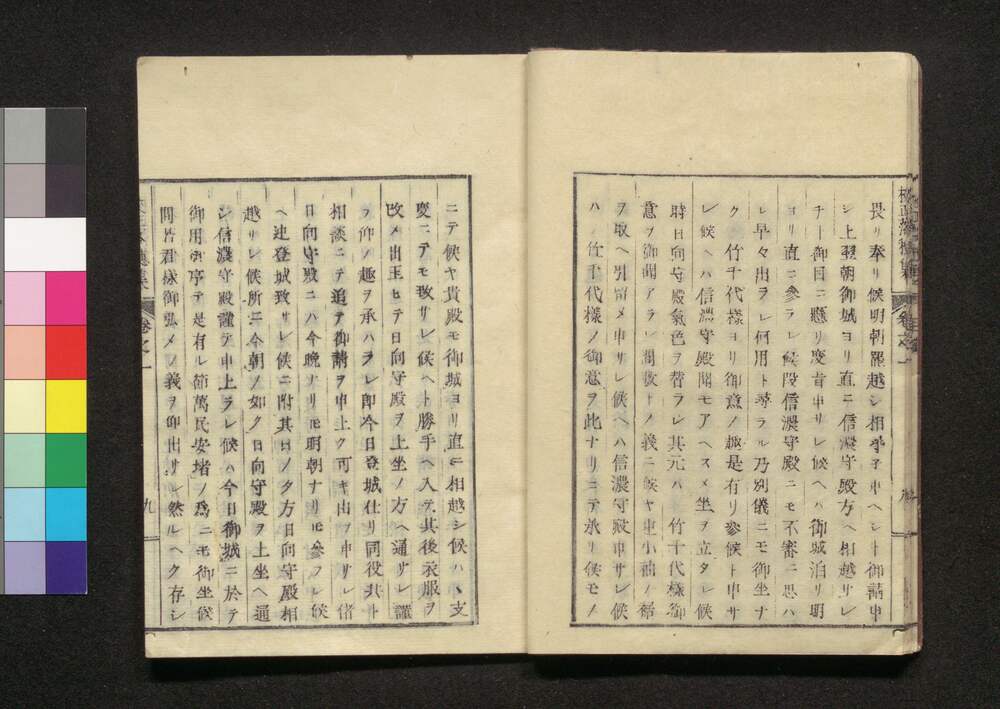 畏リ奉リ候明朝罷越シ相學子申ヘシト御請申
シ上翌朝御城ヨリ直ニ信濃守殿方ヘ相越サレ
チト御目ニ懸リ度旨申サレ候ヘハ御城泊リ明
ヨリ直ニ參ラレ候段信濃守殿ニモ不審ニ思ハ
レ早々出ラレ何用ト尋ラル乃別儀ニモ御坐ナ
ク 竹千代樣ヨリ御意ノ趣是有リ參候ト申サ
レ候ヘハ信濃守殿聞モアヘス〆坐ヲ立タレ候
時日向守殿氣色ヲ替ラレ其元ハ 竹千代樣御
意ヲ御聞アラレ間敷トノ義ニ候ヤ申小袖ノ
ヲ取ヘ引留メ申サレ候ヘハ信濃守殿申サレ候
ハ 竹千代樣ノ御意ヲ此ナリニテ承リ候モノ
ニテ候ヤ貴殿モ御城ヨリ直ニ相越シ候ハヽ支
度ニテモ致サレ候ヘト勝手ヘ入テ其後衣服ヲ
改メ出玉ヒテ日向守殿ヲ上坐ノ方ヘ通サレ謹
テ仰ノ趣ヲ承ハラレ即今日登城仕リ同役共ト
相談ニテ追テ御請ヲ申上ク可キ由ヲ申サレ偖
日向守殿ニハ今晩ナリ𪜈明朝ナリ𪜈參ラレ候
ヘ迚登城致サレ候ニ附其日ノ夕方日向守殿相
越サレ候所ニ今朝ノ如ク日向守殿ヲ上坐ヘ通
シ信濃守殿謹テ申上ラレ候ハ今日御城ニ於テ
御用 亭テ是有ル節萬民安堵ノ爲ニモ御坐候
間 若君樣御弘メノ義ヲ仰出サレ然ルヘク存シ
卷之一
九